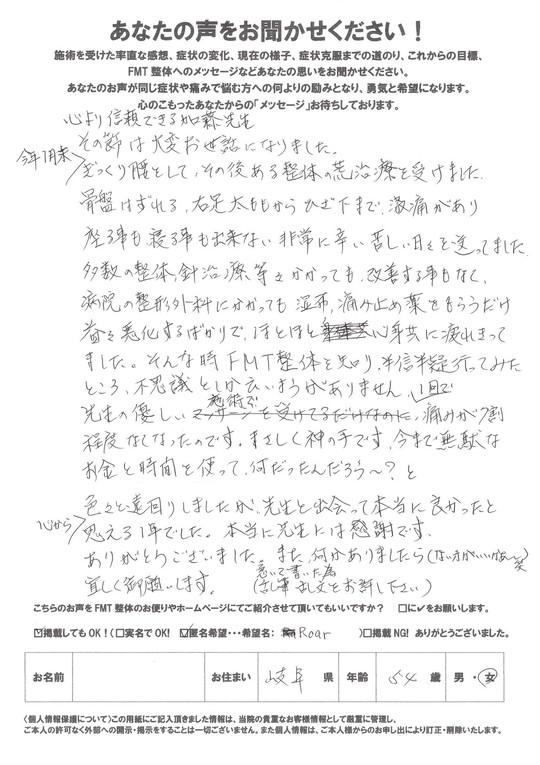 あなたの声をお聞かせください！
施術を受けた率直な感想、症状の変化、現在の様子、症状克服までの道のり、これからの目標、
FMT 整体へのメッセージなどあなたの思いをお聞かせください。
あなたのお声が同じ症状や痛みで悩む方への何よりの励みとなり、勇気と希望になります。
心のこもったあなたからの「メッセージ」お待ちしております。
心より信頼できる加藤先生
その節は大変お世話になりました。
今年1月末
ぎっくり腰として、その後ある整体の荒治療を受けました。
骨盤はずれる、右足太ももからひざ下まで、激痛があり
座る事も寝る事も出来ない非常に辛い苦しい日々を送ってました
多数の整体、針治療、等々かかっても、改善する事もなく、
病院の整形外科にかかっても湿布、痛み止め薬をもらうだけ
益々悪化するばかりで、ほとほと心身共に疲れきって
ました。そんな時FMT整体を知り、半信半疑行ってみた
ところ、不思議としか言いようがありません、1回で
先生の優しい施術で、痛みが7割
程度なくなったのです。まさしく神の手です、今まで無駄な
お金と時間を使って、何だったんだろう〜？と
色々と遠回りしましたが、先生と出会って本当に良かったと
心から
思える1年でした。本当に先生には感謝です。
ありがとうございました。また、何かありましたら(ない方がいいかな〜笑)
宜しく御願いします。
(急いで書いた為
乱筆乱文をお許し下さい)
こちらのお声をFMT整体のお便りやホームページにてご紹介させて頂いてもいいですか？ □に✓をお願いします。
☑掲載してもOK！(□実名でOK! ☑匿名希望・・・希望名： Roar )□掲載NG! ありがとうございました。
お名前 お住まい 岐阜 県 年齢 54 歳 男・女
〈個人情報保護について〉この用紙にご記入頂きました情報は、当院の貴重なお客様情報として厳重に管理し、
ご本人の許可なく外部への開示・掲示をすることは一切ございません。また個人情報は、ご本人様からのお申し出により訂正・削除いたします。